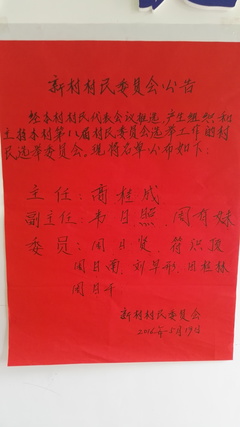 新村村民委员会公告
经本村村民代表会议推选,产生组织和
主持本村第八届村民委员会选举工作的村
民选举委员会。现将名单公布如下:
主任:高桂成
副主任:韦日照、周有妹
委员:周日贤、符洪段
周日南、刘草彤、田桂林
周日开
新村村民委员会
2016年5月19日